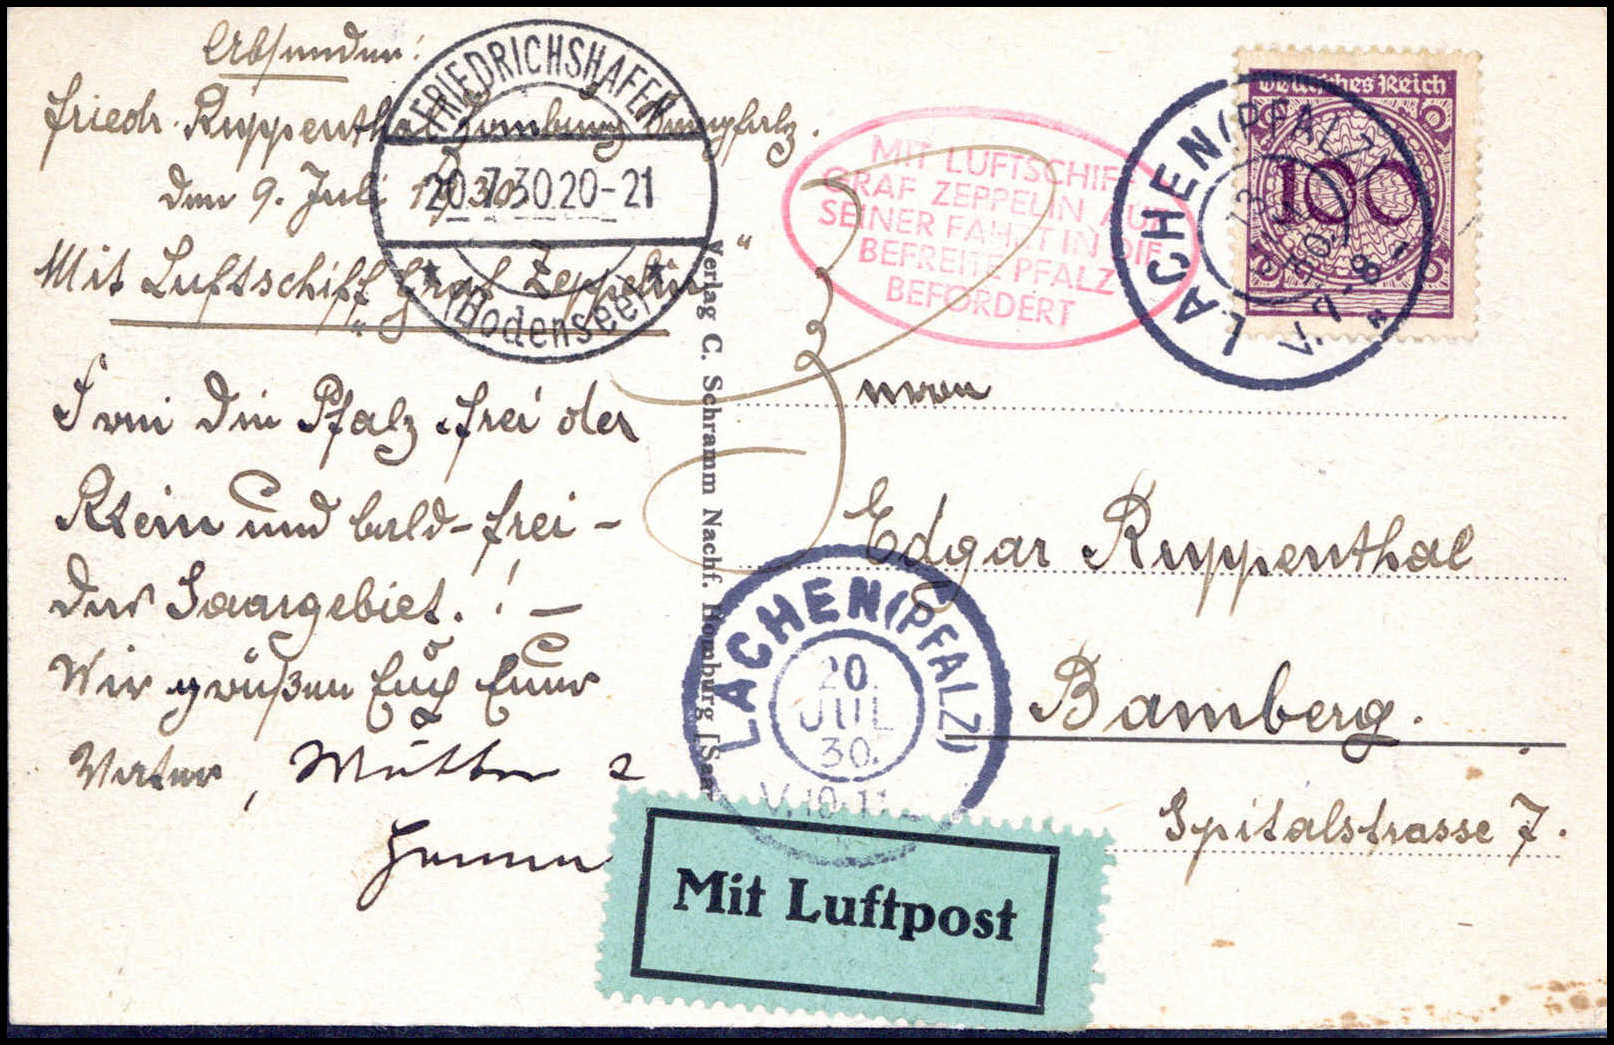 Absender:
Friedr. Ruppenthal Homburg Saarpfalz.
den 9. Juli 1930
Mit Luftschiff „Graf Zeppelin“
FRIEDRICHSHAFEN
20.7.30.20-21
(Bodensee)
MIT LUFTSCHIFF
GRAF ZEPPELIN AUF
SEINER FAHRT IN DIE
BEFREITE PFALZ
BEFÖRDERT
Deutsches Reich
100
LACHEN (PFALZ)
V. 7-8
Frei die Pfalz frei der
Rhein und bald-frei-
das Saargebiet. ! —
Wir grüßen Euch Euer
Vater, Mutter &
Verlag C. Schramm Nachf. Homburg [Saar
Herrn
Edgar Ruppenthal
Bamberg.
Spitalstrasse 7.
LACHEN (PFALZ)
20.
JUL
30.
V.10-11
Mit Luftpost